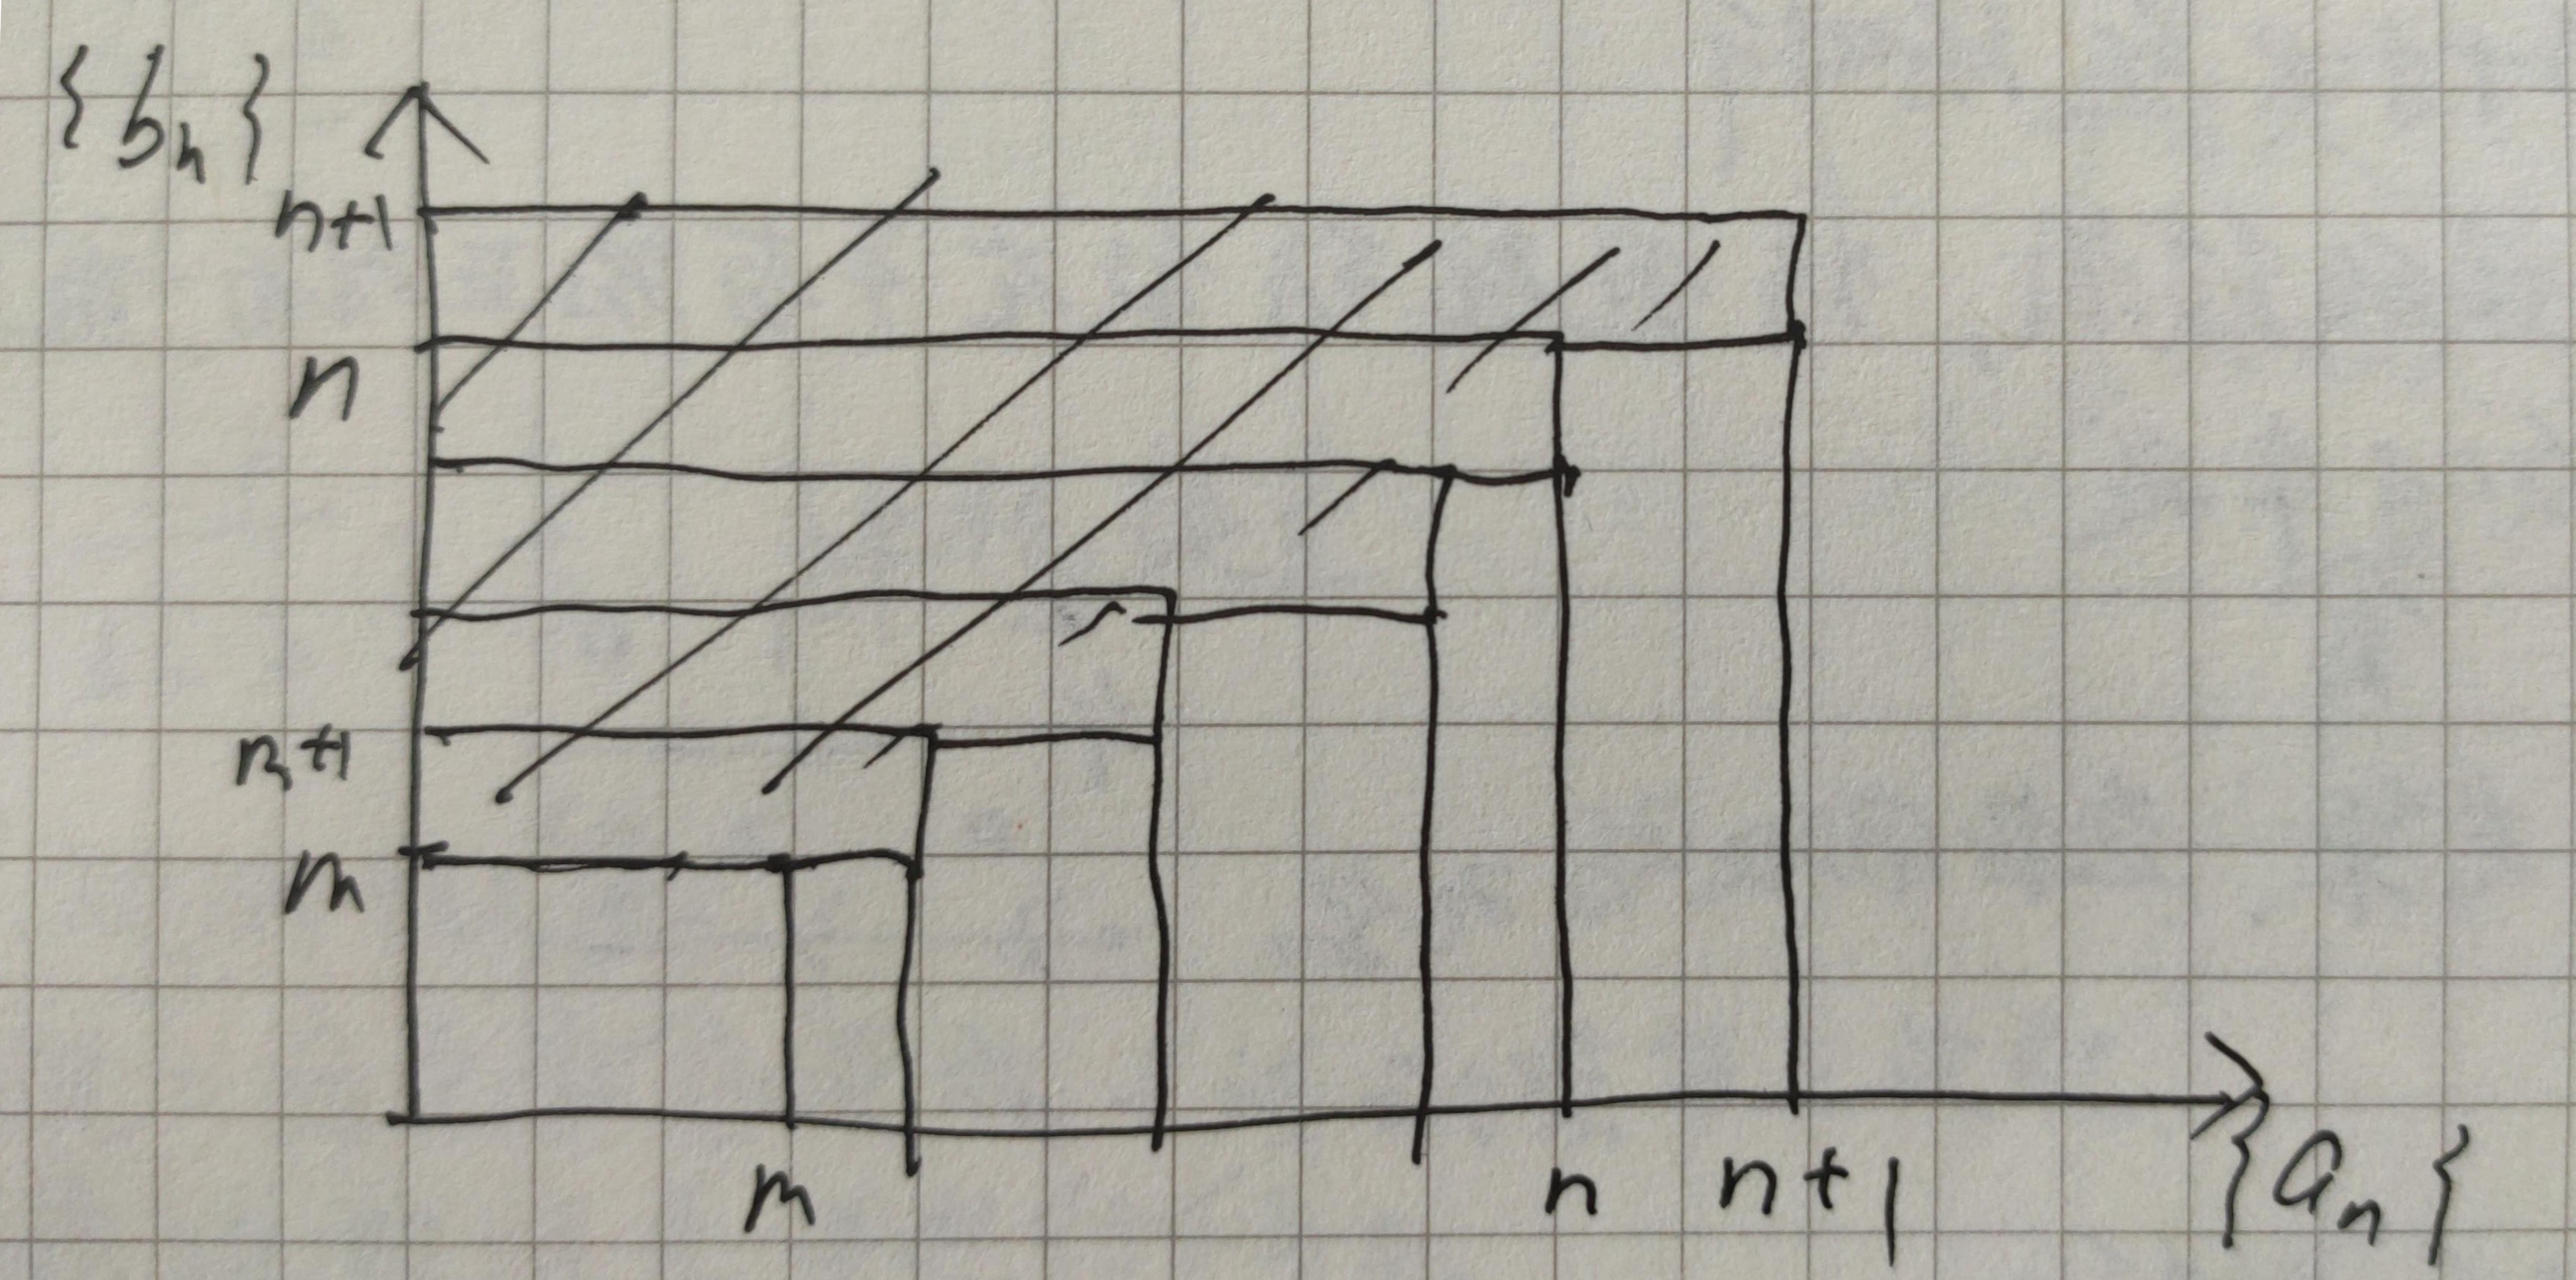 {bn}
n+1
n
n+1
m
m n n+1 {an}